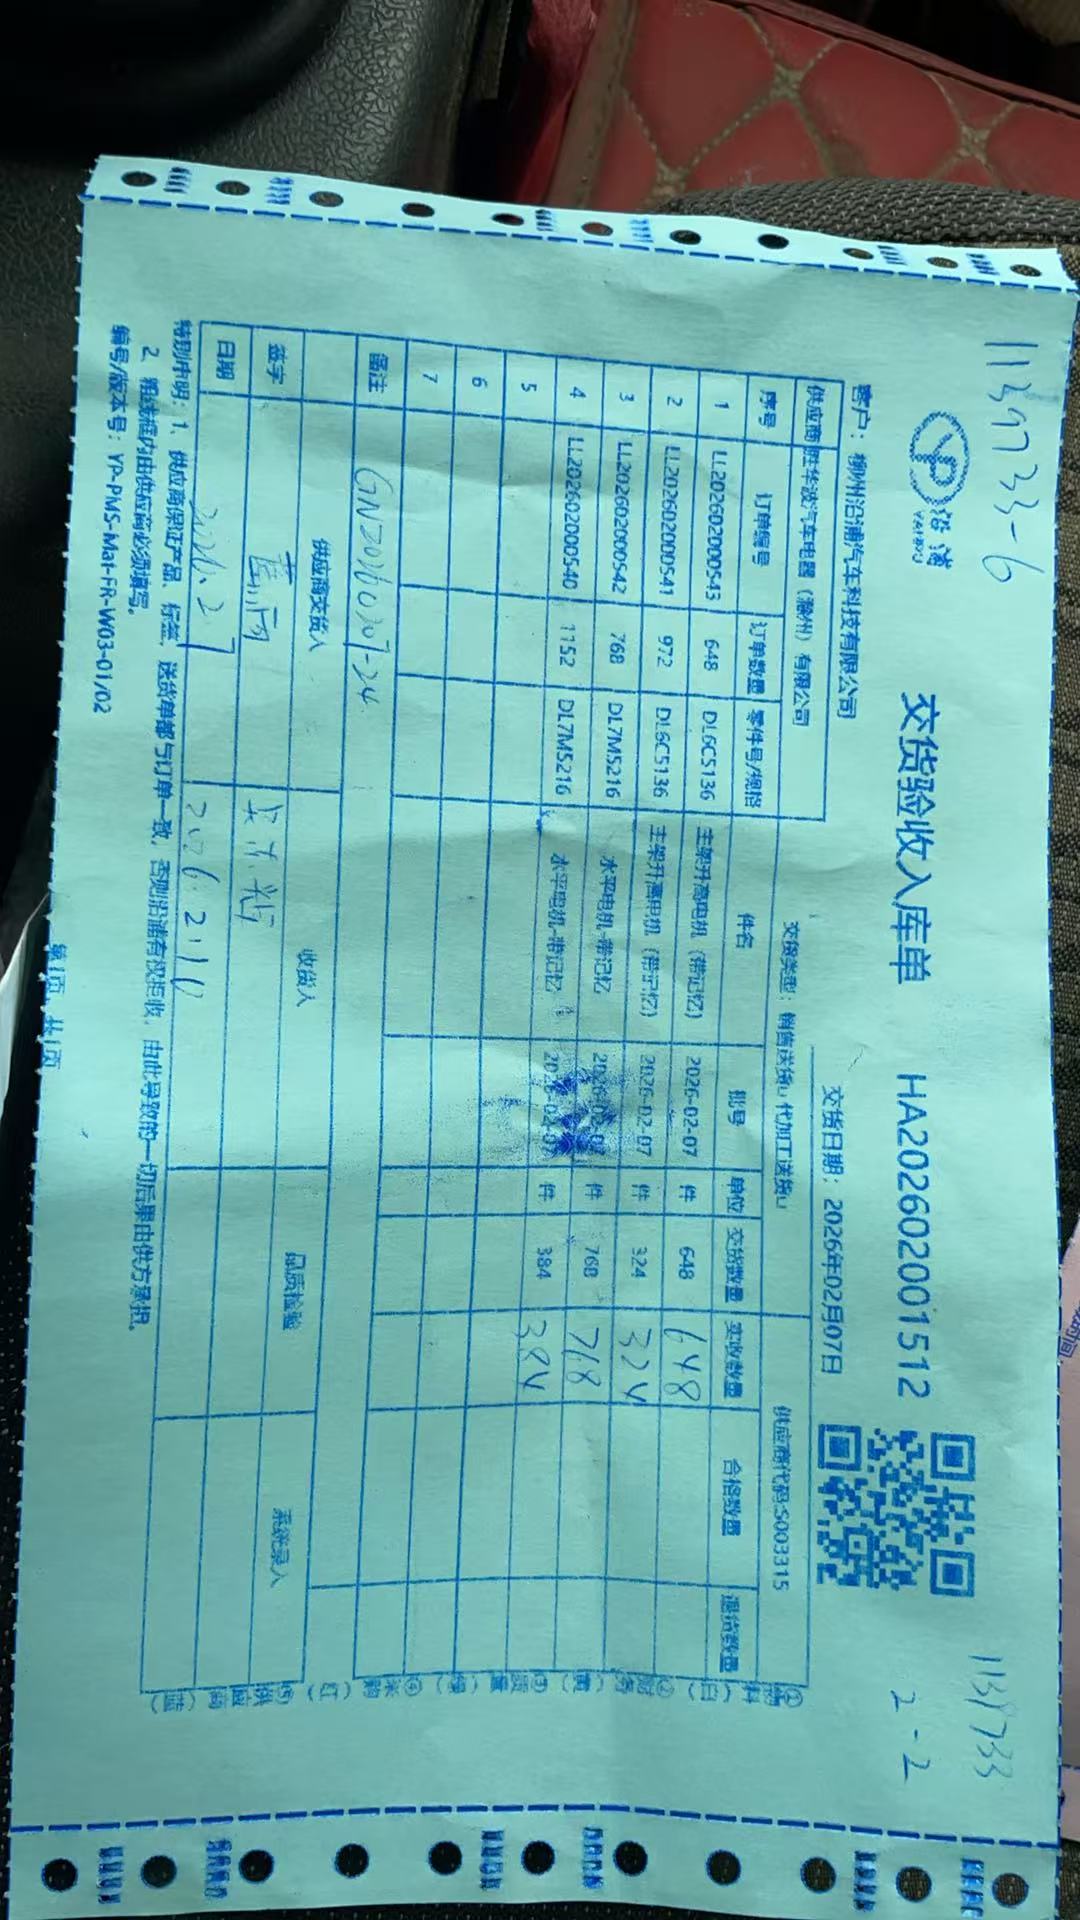 113733-6
113733
2-2
沿浦
YANPU
交货验收入库单 HA202602001512
客户：柳州沿浦汽车科技有限公司 交货日期：2026年02月07日
供应商 胜华波汽车电器（滁州）有限公司 交货类型：销售送货□ 代加工送货□ 供应商代码:S003315
序号 订单编号 订单数量 零件号/规格 件名 批号 单位 交货数量 实收数量 合格数量 退货数量
1 LL202602000543 648 DL6C5136 主架升高电机（带记忆） 2026-02-07 件 648 648
2 LL202602000541 972 DL6C5136 主架升高电机（带记忆） 2026-02-07 件 324 324
3 LL202602000542 768 DL7M5216 水平电机-带记忆 2026-02-07 件 768 768
4 LL202602000540 1152 DL7M5216 水平电机-带记忆 2026-02-07 件 384 384
5
6
7
备注 GNZ20260207-24
供应商交货人 收货人 品质检验 系统录入
签字
日期 2026.2.7 2026.2.10
特别申明：1、供应商保证产品、标签、送货单都与订单一致，否则沿浦有权拒收，由此导致的一切后果由供方承担。
2、粗线框内由供应商必须填写。
编号/版本号：YP-PMS-Mat-FR-W03-01/02
第1页, 共1页
①物料（白）②财务（黄）③质量（绿）④采购（红）⑤供应商（蓝）